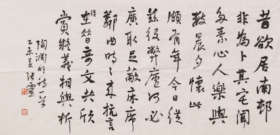 昔欲居南邨
非為卜其宅聞
多素心人樂與
數晨夕懷此
頗有年今日從
茲役弊廬何必
廣取足蔽床席
鄰曲時々来抗言
談在昔奇文共欣
賞疑義相與析
陶淵明詩
乙未